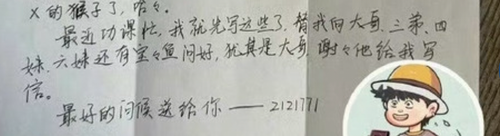 X的猴子了，哈々。
最近功课忙，我就先写这些了，替我向大哥、三弟、四
妹、六妹还有宝々鱼问好，尤其是大哥，谢々他给我写
信。
最好的问候送给你——2121771